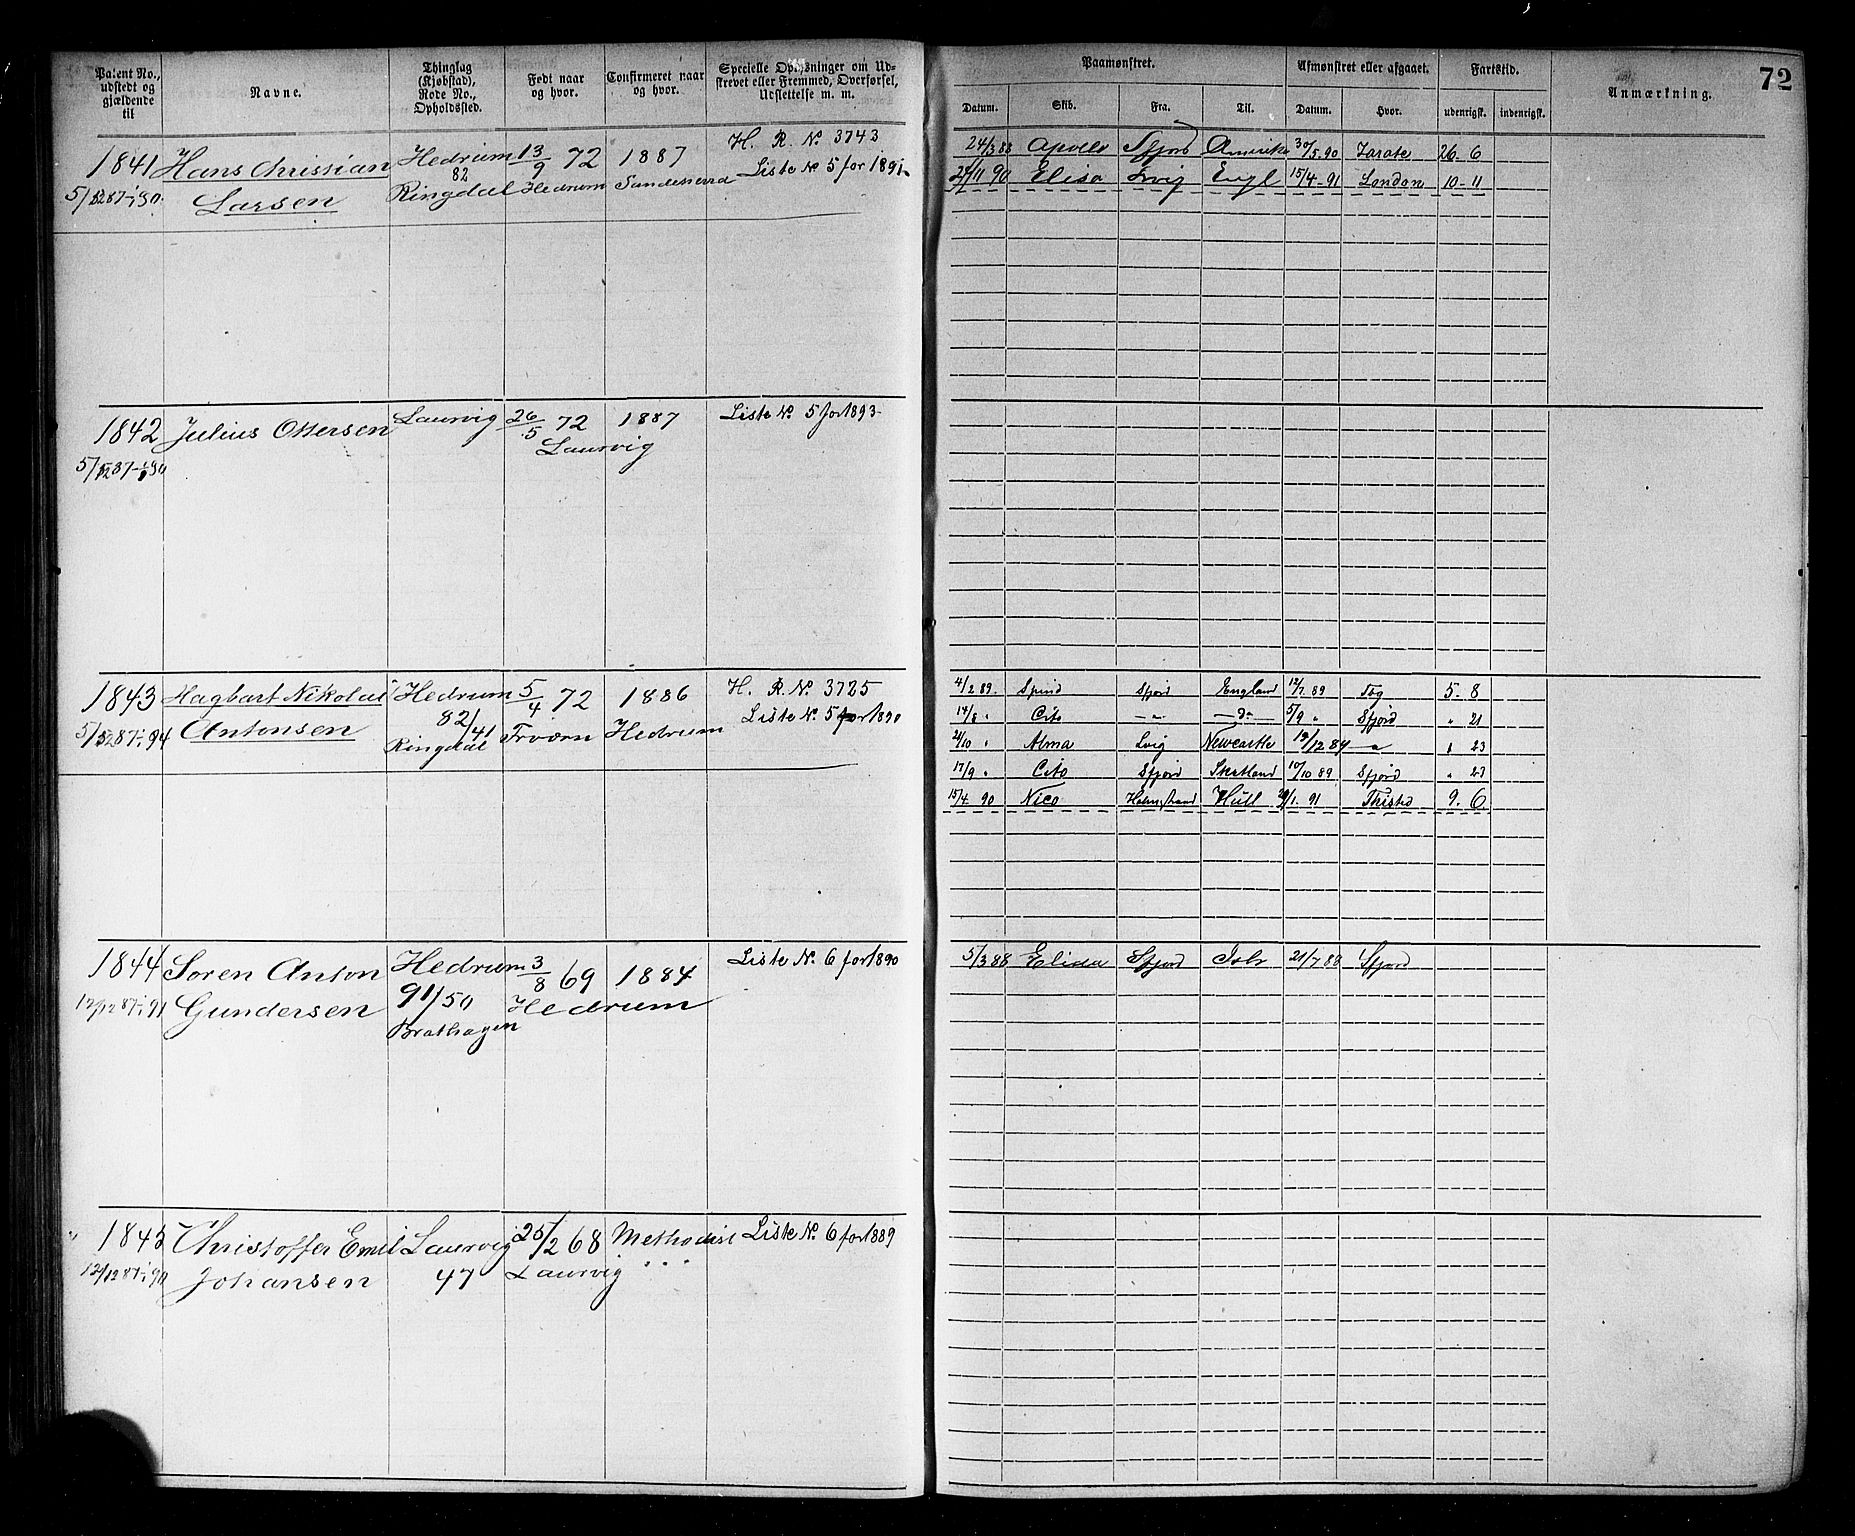 72
Patent No., udstedt og gjældende til
Navne.
Thinglag (Kjøbstad), Rode No., Opholdssted.
Født naar og hvor.
Confirmeret naar og hvor.
Specielle Oplysninger om Udskrevet eller Fremmed, Overførsel, Udslettelse m. m.
Paamønstret.
Afmønstret eller afgaaet.
Fartstid.
Anmærkning.
Datum. Skib. Fra. Til. Datum. Hvor. udenrigsk. indenrigsk.
1841 Hans Christian Hedrum 13/9 72 1887 H. R. No 3743
82
5/12 87-1/1 90 Larsen Ringdal Hedrum Liste No 5 for 1891
24/3 88 Apollo Sfjord Amerika 30/5 90 Zarate 26-6
90 Elisa Lvig Engl 15/4-91 London 10-11
1842 Julius Ottersen Laurvig 26/5 72 1887 Liste No 5 for 1893
5/12 87-1/1 90 Laurvig
1843 Hagbart Nikolai Hedrum 5/4 72 1886 H. R. No. 3725
5/12 87-1/1 94 Antonsen 82/41 Liste No. 5 for 1890
Ringdal Hedrum
4/2 89. Sfjord England 12/7 89 5-8
14/8 " Cito -"- -d- 5/9 " Sfjord " 21
21/10 " Alma Lvig Newcastle 19/12 89 -"- " 23
17/9 " Cito Sfjord 10/10 89 Sfjord " 23
15/4 90 Nico Holmestrand Hull 91 Thisted 9. 6
1844 Søren Anton Hedrum 3/8 69 1884 Liste No. 6 for 1890
12/12 87-1/1 91 Gundersen 91/50 Hedrum
Brathagen
5/3 88 Elida Sfjord 21/7 88 Sfjord
1845 Christoffer Emil Laurvig 25/2 68 Methodist Liste No. 6 for 1889
12/12 87-1/1 90 Johansen 47 Laurvig " " "